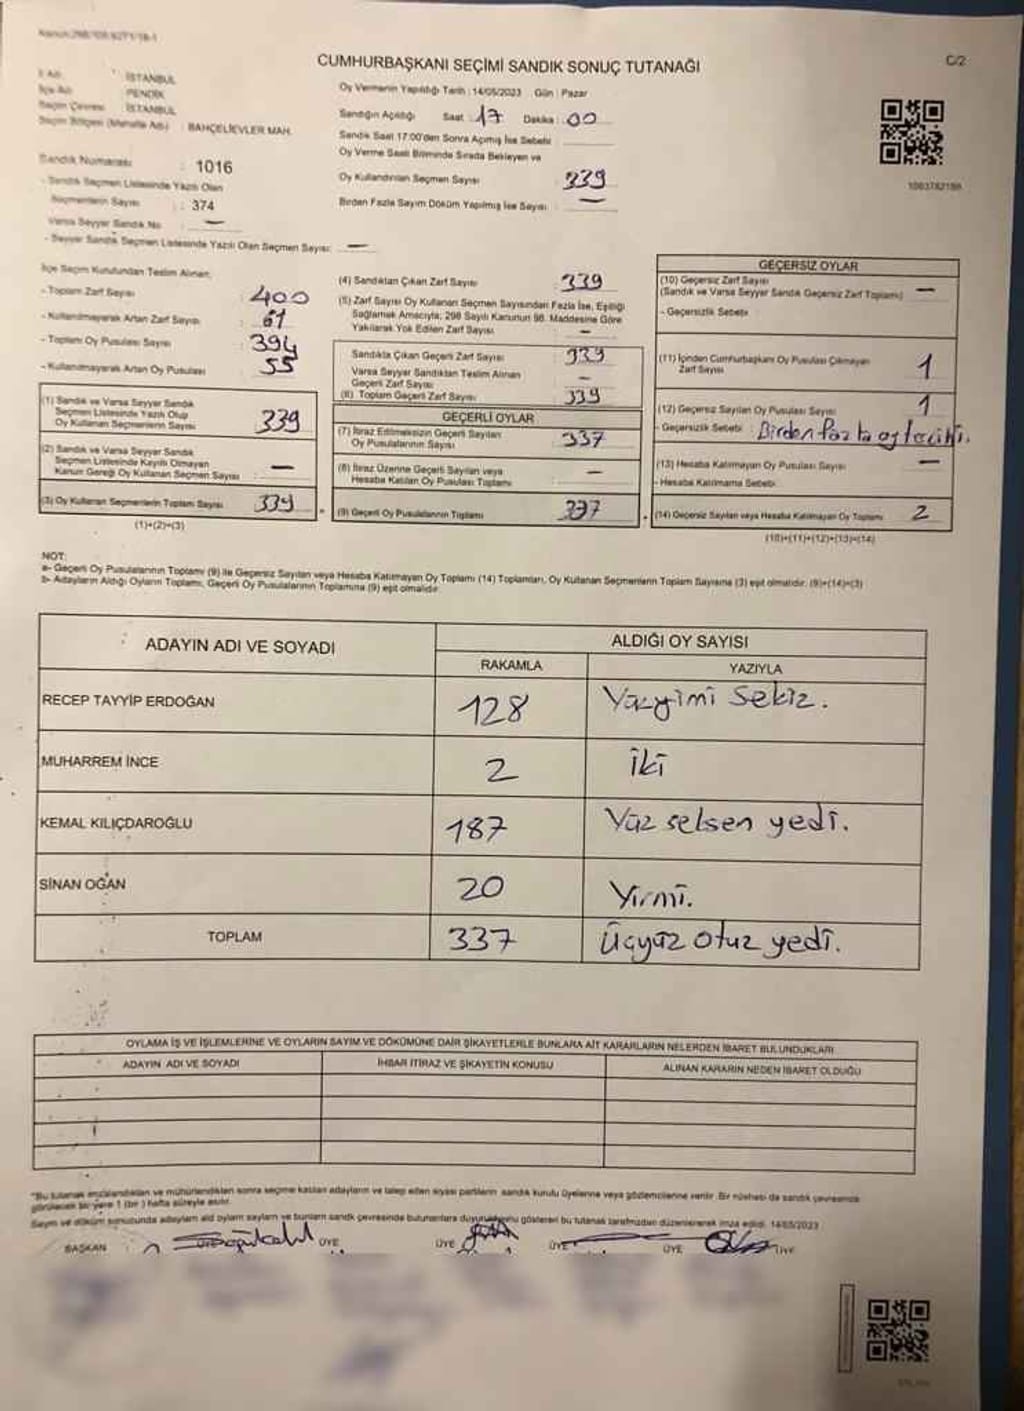 CUMHURBAŞKANI SEÇİMİ SANDIK SONUÇ TUTANAĞI
C/2
Oy Vermenin Yapıldığı Tarih : 14/05/2023 Gün : Pazar
İSTANBUL
PENDİK
Seçim Çevresi : İSTANBUL
Seçim Bölgesi (Mahalle Adı) : BAHÇELİEVLER MAH.
Sandığın Açıldığı Saat : 17 Dakika : 00
Sandık Saat 17:00'den Sonra Açılmış İse Sebebi
Oy Verme Saati Bitiminde Sırada Bekleyen ve
Oy Kullandırılan Seçmen Sayısı : 339
Birden Fazla Sayım Döküm Yapılmış İse Sayısı : —
Sandık Numarası : 1016
- Sandık Seçmen Listesinde Yazılı Olan
Seçmenlerin Sayısı : 374
Varsa Seyyar Sandık No : —
- Seyyar Sandık Seçmen Listesinde Yazılı Olan Seçmen Sayısı: —
İlçe Seçim Kurulundan Teslim Alınan;
- Toplam Zarf Sayısı : 400
- Kullanılmayarak Artan Zarf Sayısı : 61
- Toplam Oy Pusulası Sayısı : 394
- Kullanılmayarak Artan Oy Pusulası : 55
(1) Sandık ve Varsa Seyyar Sandık
Seçmen Listesinde Yazılı Olup
Oy Kullanan Seçmenlerin Sayısı : 339
(2) Sandık ve Varsa Seyyar Sandık
Seçmen Listesinde Kayıtlı Olmayan
Kanun Gereği Oy Kullanan Seçmen Sayısı : —
(3) Oy Kullanan Seçmenlerin Toplam Sayısı : 339
(1)+(2)=(3)
(4) Sandıktan Çıkan Zarf Sayısı : 339
(5) Zarf Sayısı Oy Kullanan Seçmen Sayısından Fazla İse, Eşitliği
Sağlamak Amacıyla; 298 Sayılı Kanunun 98. Maddesine Göre
Yakılarak Yok Edilen Zarf Sayısı : —
Sandıkta Çıkan Geçerli Zarf Sayısı : 339
Varsa Seyyar Sandıktan Teslim Alınan
Geçerli Zarf Sayısı : —
(6) Toplam Geçerli Zarf Sayısı : 339
GEÇERLİ OYLAR
(7) İtiraz Edilmeksizin Geçerli Sayılan
Oy Pusulalarının Sayısı : 337
(8) İtiraz Üzerine Geçerli Sayılan veya
Hesaba Katılan Oy Pusulası Toplamı : —
(9) Geçerli Oy Pusulalarının Toplamı : 337
GEÇERSİZ OYLAR
(10) Geçersiz Zarf Sayısı
(Sandık ve Varsa Seyyar Sandık Geçersiz Zarf Toplamı) —
- Geçersizlik Sebebi :
(11) İçinden Cumhurbaşkanı Oy Pusulası Çıkmayan
Zarf Sayısı 1
(12) Geçersiz Sayılan Oy Pusulası Sayısı 1
- Geçersizlik Sebebi : Birden fazla oy tercihi.
(13) Hesaba Katılmayan Oy Pusulası Sayısı —
- Hesaba Katılmama Sebebi
(14) Geçersiz Sayılan veya Hesaba Katılmayan Oy Toplamı 2
(10)+(11)+(12)+(13)=(14)
NOT:
a- Geçerli Oy Pusulalarının Toplamı (9) ile Geçersiz Sayılan veya Hesaba Katılmayan Oy Toplamı (14) Toplamları, Oy Kullanan Seçmenlerin Toplam Sayısına (3) eşit olmalıdır. (9)+(14)=(3)
b- Adayların Aldığı Oyların Toplamı, Geçerli Oy Pusulalarının Toplamına (9) eşit olmalıdır.
ADAYIN ADI VE SOYADI
ALDIĞI OY SAYISI
RAKAMLA
YAZIYLA
RECEP TAYYİP ERDOĞAN 128 Yüzyirmi sekiz.
MUHARREM İNCE 2 iki
KEMAL KILIÇDAROĞLU 187 Yüz selsen yedi.
SİNAN OĞAN 20 Yirmi.
TOPLAM 337 Üçyüz otuz yedi.
OYLAMA İŞ VE İŞLEMLERİNE VE OYLARIN SAYIM VE DÖKÜMÜNE DAİR ŞİKAYETLERLE BUNLARA AİT KARARLARIN NELERDEN İBARET BULUNDUKLARI
ADAYIN ADI VE SOYADI
İHBAR İTİRAZ VE ŞİKAYETİN KONUSU
ALINAN KARARIN NEDEN İBARET OLDUĞU
"Bu tutanak imzalandıktan ve mühürlendikten sonra seçime katılan adayların ve talep eden siyasi partilerin sandık kurulu üyelerine veya gözlemcilerine verilir. Bir nüshası da sandık çevresinde
görülecek bir yere 1 (bir ) hafta süreyle asılır.
Sayım ve döküm sonucunda adayların oyların sayıları ve bunların sandık çevresinde bulunanlara duyurulduğunu gösteren bu tutanak tarafımızdan düzenlenerek imza edildi. 14/05/2023
BAŞKAN ÜYE ÜYE ÜYE ÜYE ÜYE